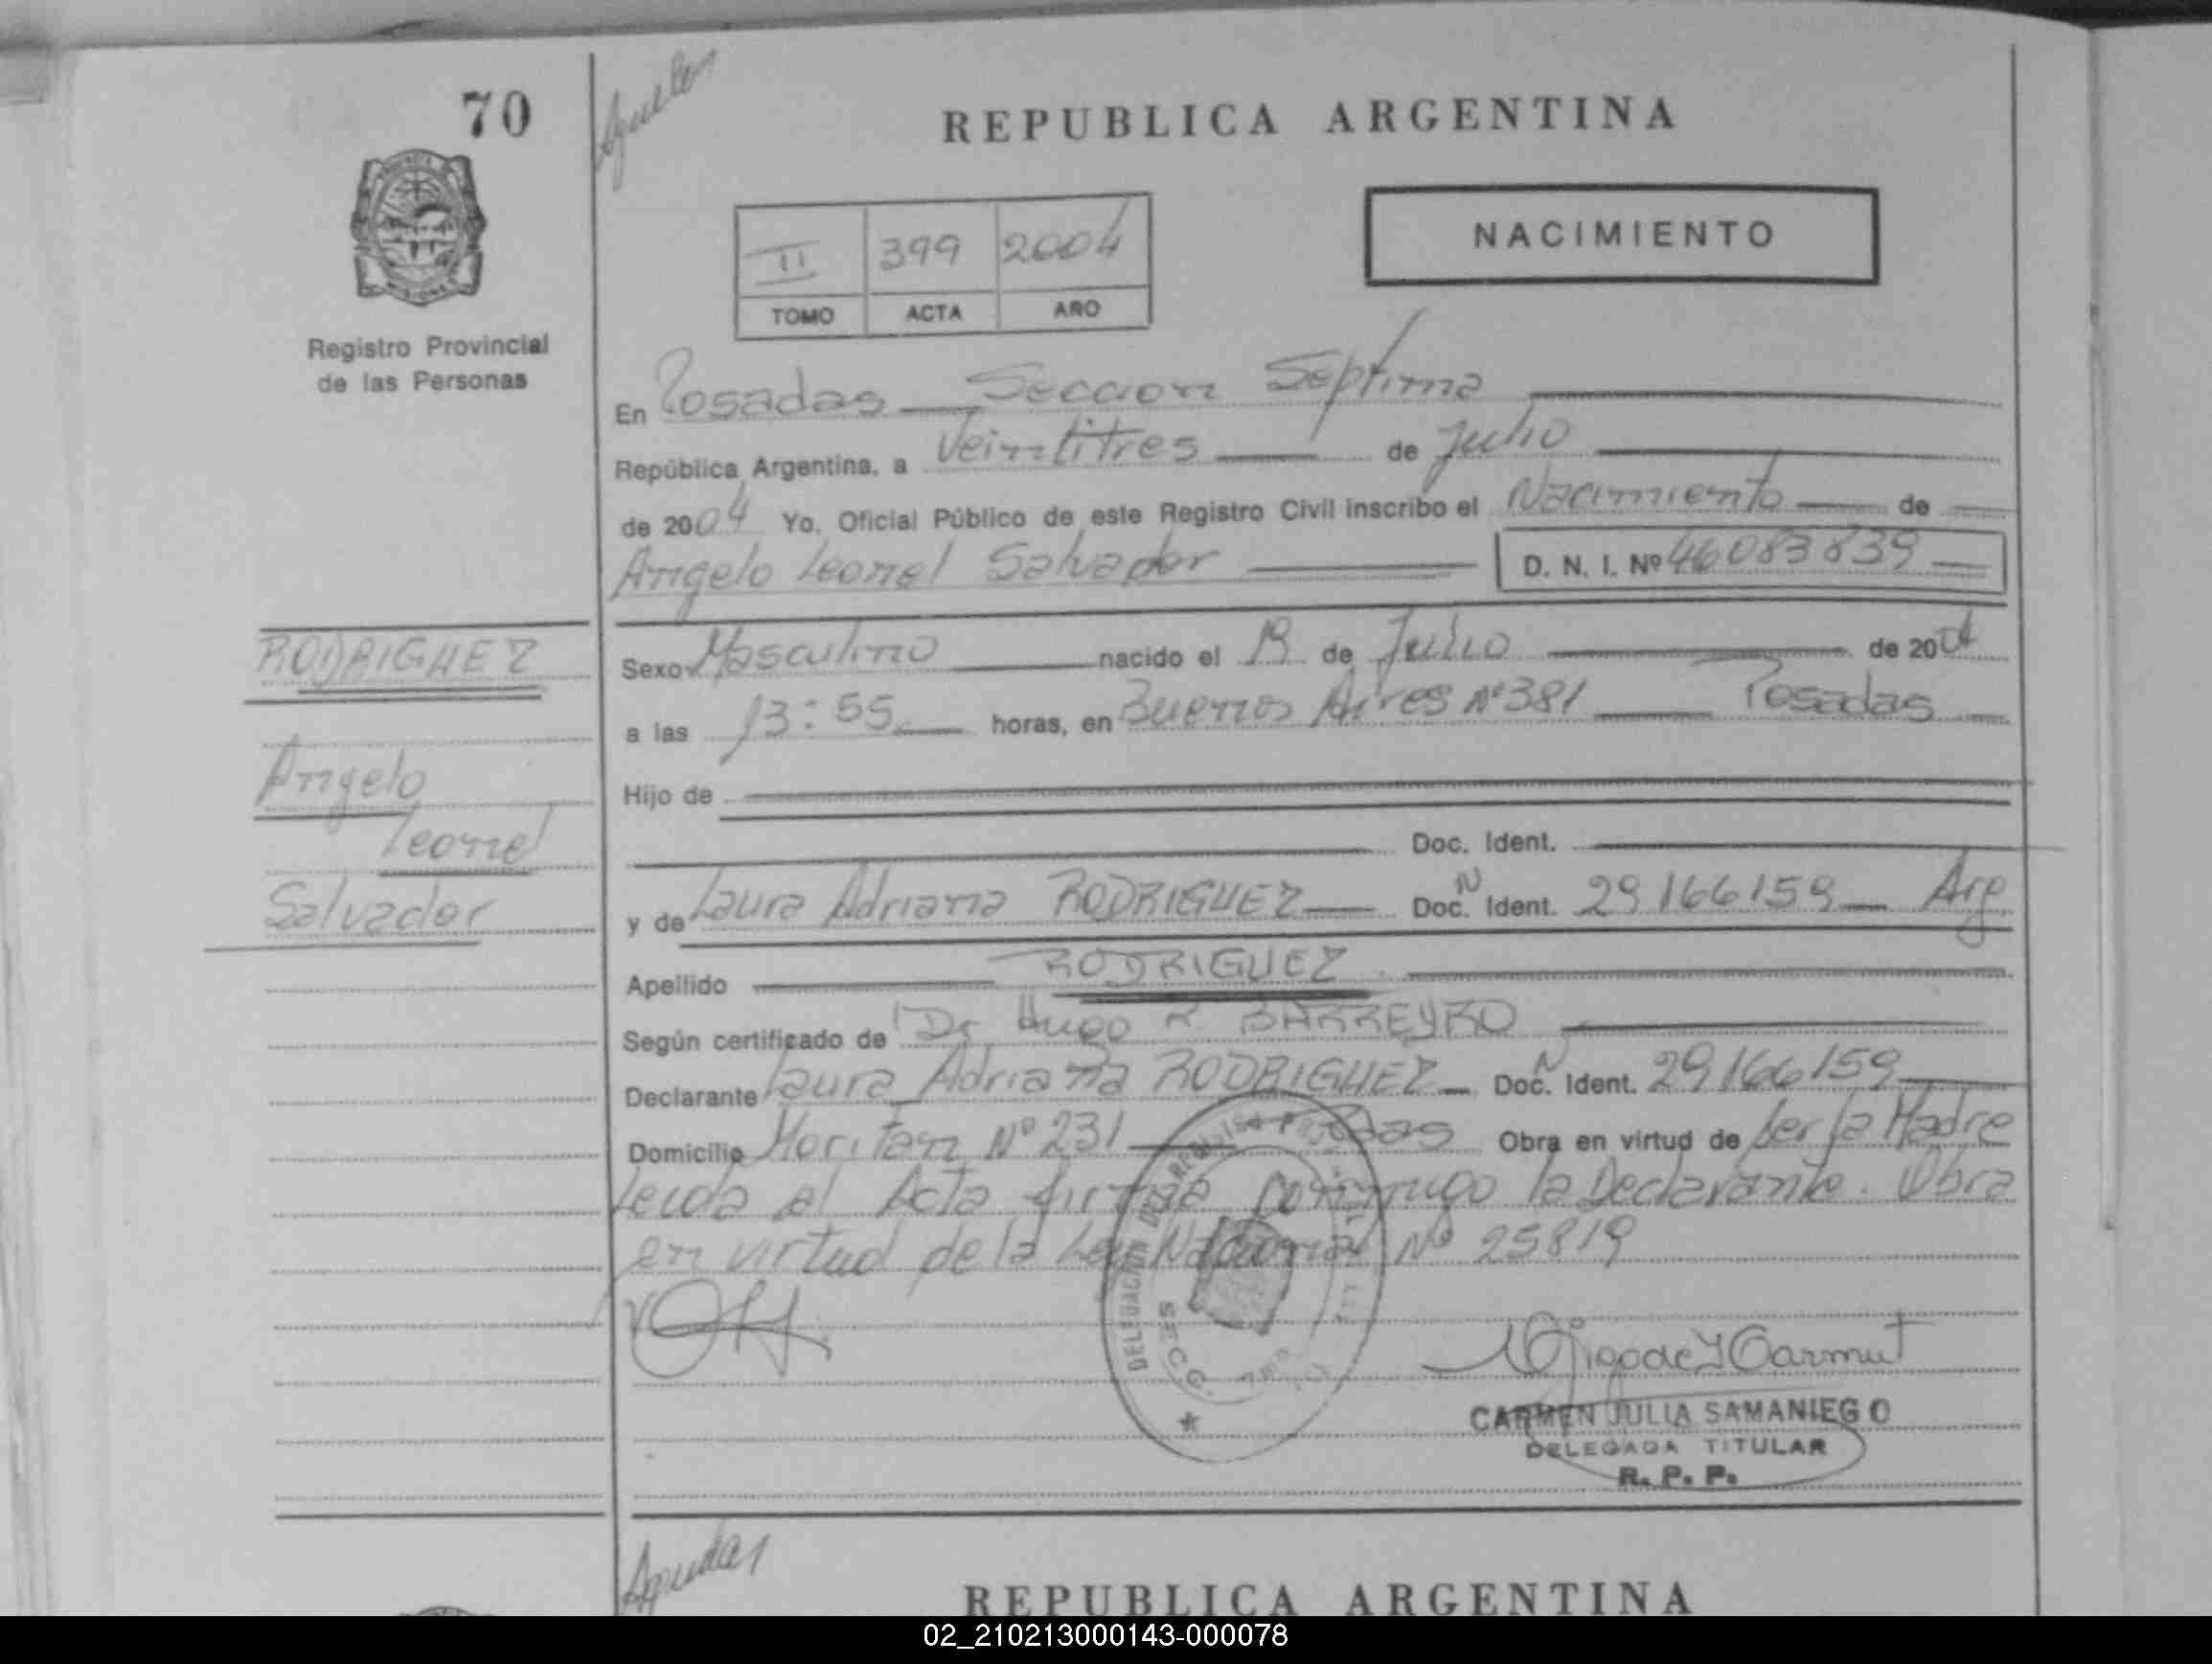 70
REPUBLICA ARGENTINA
Registro Provincial
de las Personas
II 399 2004
TOMO ACTA AÑO
NACIMIENTO
En Posadas Seccion Septima
República Argentina, a Veintitres de Julio
de 2004 Yo, Oficial Público de este Registro Civil inscribo el Nacimiento de
Angelo Leonel Salvador D. N. I. Nº 46083839
RODRIGUEZ
Angelo
Leonel
Salvador
Sexo Masculino nacido el 19 de Julio de 2004
a las 13:55 horas, en Buenos Aires Nº 381 Posadas
Hijo de
Doc. Ident.
y de Laura Adriana RODRIGUEZ Doc. N Ident. 29166159 Arg
Apellido RODRIGUEZ
Según certificado de Dr Hugo R BARREYRO
Declarante Laura Adriana RODRIGUEZ Doc. N Ident. 29166159
Domicilio Moritan Nº 231 Posadas Obra en virtud de ser la Madre
Leida el Acta firma conmigo la Declarante. Obra
en virtud de la Ley Nacional Nº 25819
CARMEN JULIA SAMANIEGO
DELEGADA TITULAR
R. P. P.
REPUBLICA ARGENTINA
02_210213000143-000078